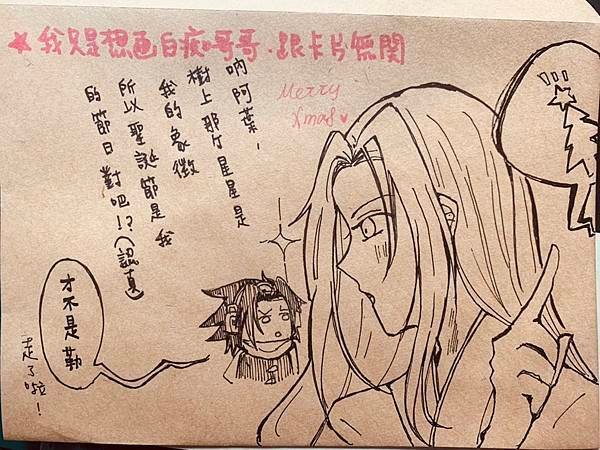 ★我只是想画白痴哥哥、跟卡片無関
Merry
Xmas♥
吶阿葉~
樹上那个星星是
我的象徵
所以聖誕節是我
的節日對吧!?(認真)
才不是勒
走了啦!